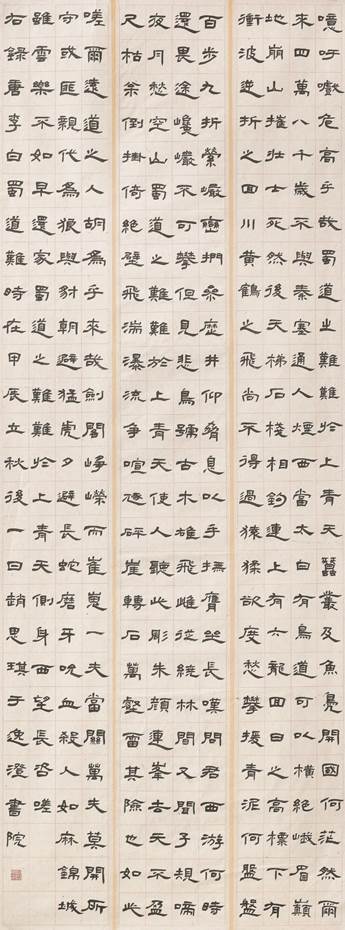 噫吁嚱危高乎哉蜀道之難難於上青天蠶叢及魚鳧開國何茫然爾
來四萬八千歲不與秦塞通人煙西當太白有鳥道可以橫絕峨眉巔
地崩山摧壯士死然後天梯石棧相鉤連上有六龍回日之高標下有
衝波逆折之回川黃鶴之飛尚不得過猿猱欲度愁攀援青泥何盤盤
百步九折縈巖巒捫參歷井仰脅息以手撫膺坐長嘆問君西游何時
還畏途巉巖不可攀但見悲鳥號古木雄飛雌從繞林間又聞子規啼
夜月愁空山蜀道之難難於上青天使人聽此彫朱顏連峯去天不盈
尺枯松倒掛倚絕壁飛湍瀑流爭喧豗砯崖轉石萬壑雷其險也如此
嗟爾遠道之人胡為乎來哉劍閣崢嶸而崔嵬一夫當關萬夫莫開所
守或匪親化為狼與豺朝避猛虎夕避長蛇磨牙吮血殺人如麻錦城
雖雲樂不如早還家蜀道之難難於上青天側身西望長咨嗟
右錄唐李白蜀道難時在甲辰立秋後一日趙思琪于逸澄書院